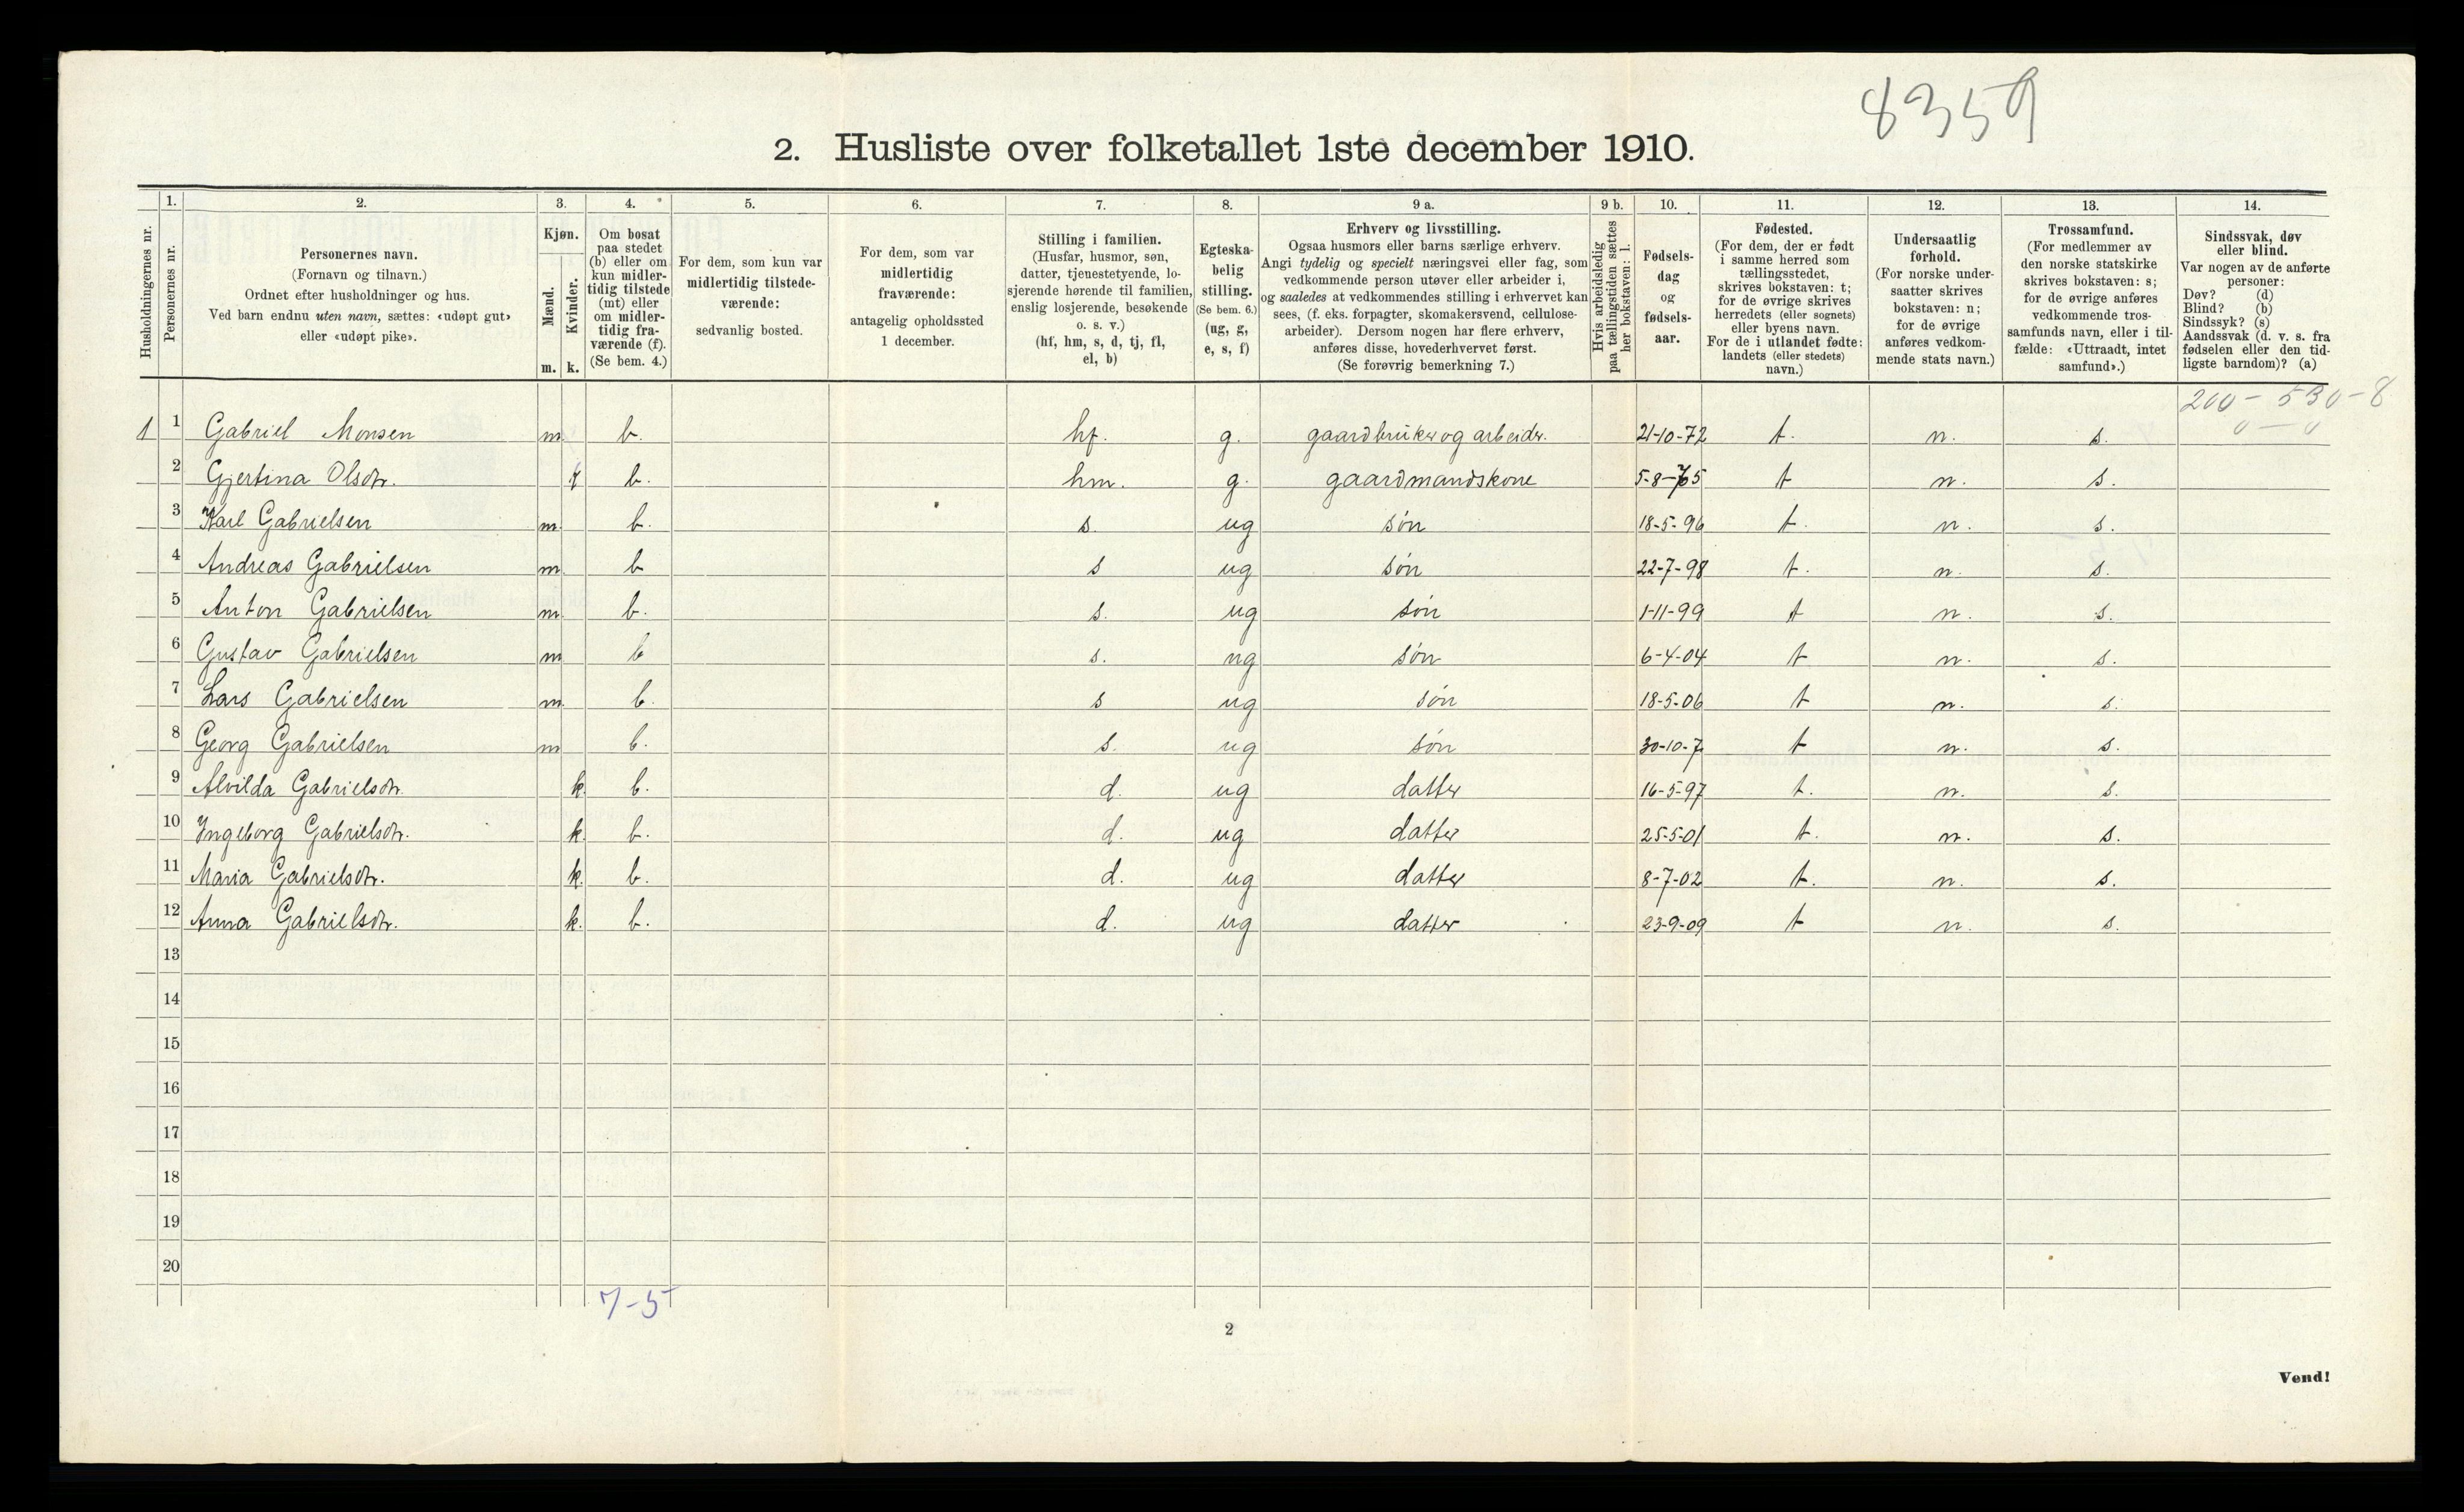 8359
2. Husliste over folketallet 1ste december 1910.
1. 2. 3. 4. 5. 6. 7. 8. 9 a. 9 b. 10. 11. 12. 13. 14.
Husholdningernes nr.
Personernes nr.
Personernes navn.
(Fornavn og tilnavn.)
Ordnet efter husholdninger og hus.
Ved barn endnu uten navn, sættes: «udøpt gut»
eller «udøpt pike».
Kjøn.
Mænd.
Kvinder.
m. k.
Om bosat
paa stedet
(b) eller om
kun midler-
tidig tilstede
(mt) eller
om midler-
tidig fra-
værende (f).
(Se bem. 4.)
For dem, som kun var
midlertidig tilstede-
værende:
sedvanlig bosted.
For dem, som var
midlertidig
fraværende:
antagelig opholdssted
1 december.
Stilling i familien.
(Husfar, husmor, søn,
datter, tjenestetyende, lo-
sjerende hørende til familien,
enslig losjerende, besøkende
o. s. v.)
(hf, hm, s, d, tj, fl,
el, b)
Egteska-
belig
stilling.
(Se bem. 6.)
(ug, g,
e, s, f)
Erhverv og livsstilling.
Ogsaa husmors eller barns særlige erhverv.
Angi tydelig og specielt næringsvei eller fag, som
vedkommende person utøver eller arbeider i,
og saaledes at vedkommendes stilling i erhvervet kan
sees, (f. eks. forpagter, skomakersvend, cellulose-
arbeider). Dersom nogen har flere erhverv,
anføres disse, hovederhvervet først.
(Se forøvrig bemerkning 7.)
Hvis arbeidsledig
paa tællingstiden sættes
her bokstaven: l.
Fødsels-
dag
og
fødsels-
aar.
Fødested.
(For dem, der er født
i samme herred som
tællingsstedet,
skrives bokstaven: t;
for de øvrige skrives
herredets (eller sognets)
eller byens navn.
For de i utlandet fødte:
landets (eller stedets)
navn.)
Undersaatlig
forhold.
(For norske under-
saatter skrives
bokstaven: n;
for de øvrige
anføres vedkom-
mende stats navn.)
Trossamfund.
(For medlemmer av
den norske statskirke
skrives bokstaven: s;
for de øvrige anføres
vedkommende tros-
samfunds navn, eller i til-
fælde: «Uttraadt, intet
samfund».)
Sindssvak, døv
eller blind.
Var nogen av de anførte
personer:
Døv? (d)
Blind? (b)
Sindssyk? (s)
Aandssvak (d. v. s. fra
fødselen eller den tid-
ligste barndom)? (a)
200 - 530 - 8
0 — 0
1 1 Gabriel Monsen m. b. hf. g. gaardbruker og arbeider. 21-10-72 t. n. s.
2 Gjertina Olsdtr. k b. hm. g. gaardmandskone t n. s.
3 Karl Gabrielsen m. b. s. ug søn 18-5-96 t. n. s.
4 Andreas Gabrielsen m. b s ug søn 22-7-98 t. n. s.
5 Anton Gabrielsen m. b. s. ug søn 1-11-99 t n. s.
6 Gustav Gabrielsen m b s. ug søn 6-4-04 t n. s.
7 Lars Gabrielsen m. b. s ug søn 18-5-06 t n. s.
8 Georg Gabrielsen m b. s. ug søn 30-10-7. t n. s.
9 Alvilda Gabrielsdtr. k. b. d. ug datter 16-5-97 t. n. s.
10 Ingeborg Gabrielsdtr. k. b. d. ug datter 25-5-01 t. n. s.
11 Maria Gabrielsdtr. k. b. d. ug datter 8-7-02 t. n. s.
12 Anna Gabrielsdtr. k. b. d. ug datter 23-9-09 t n. s.
13
14
15
16
17
18
19
20
7-5
2
Vend!